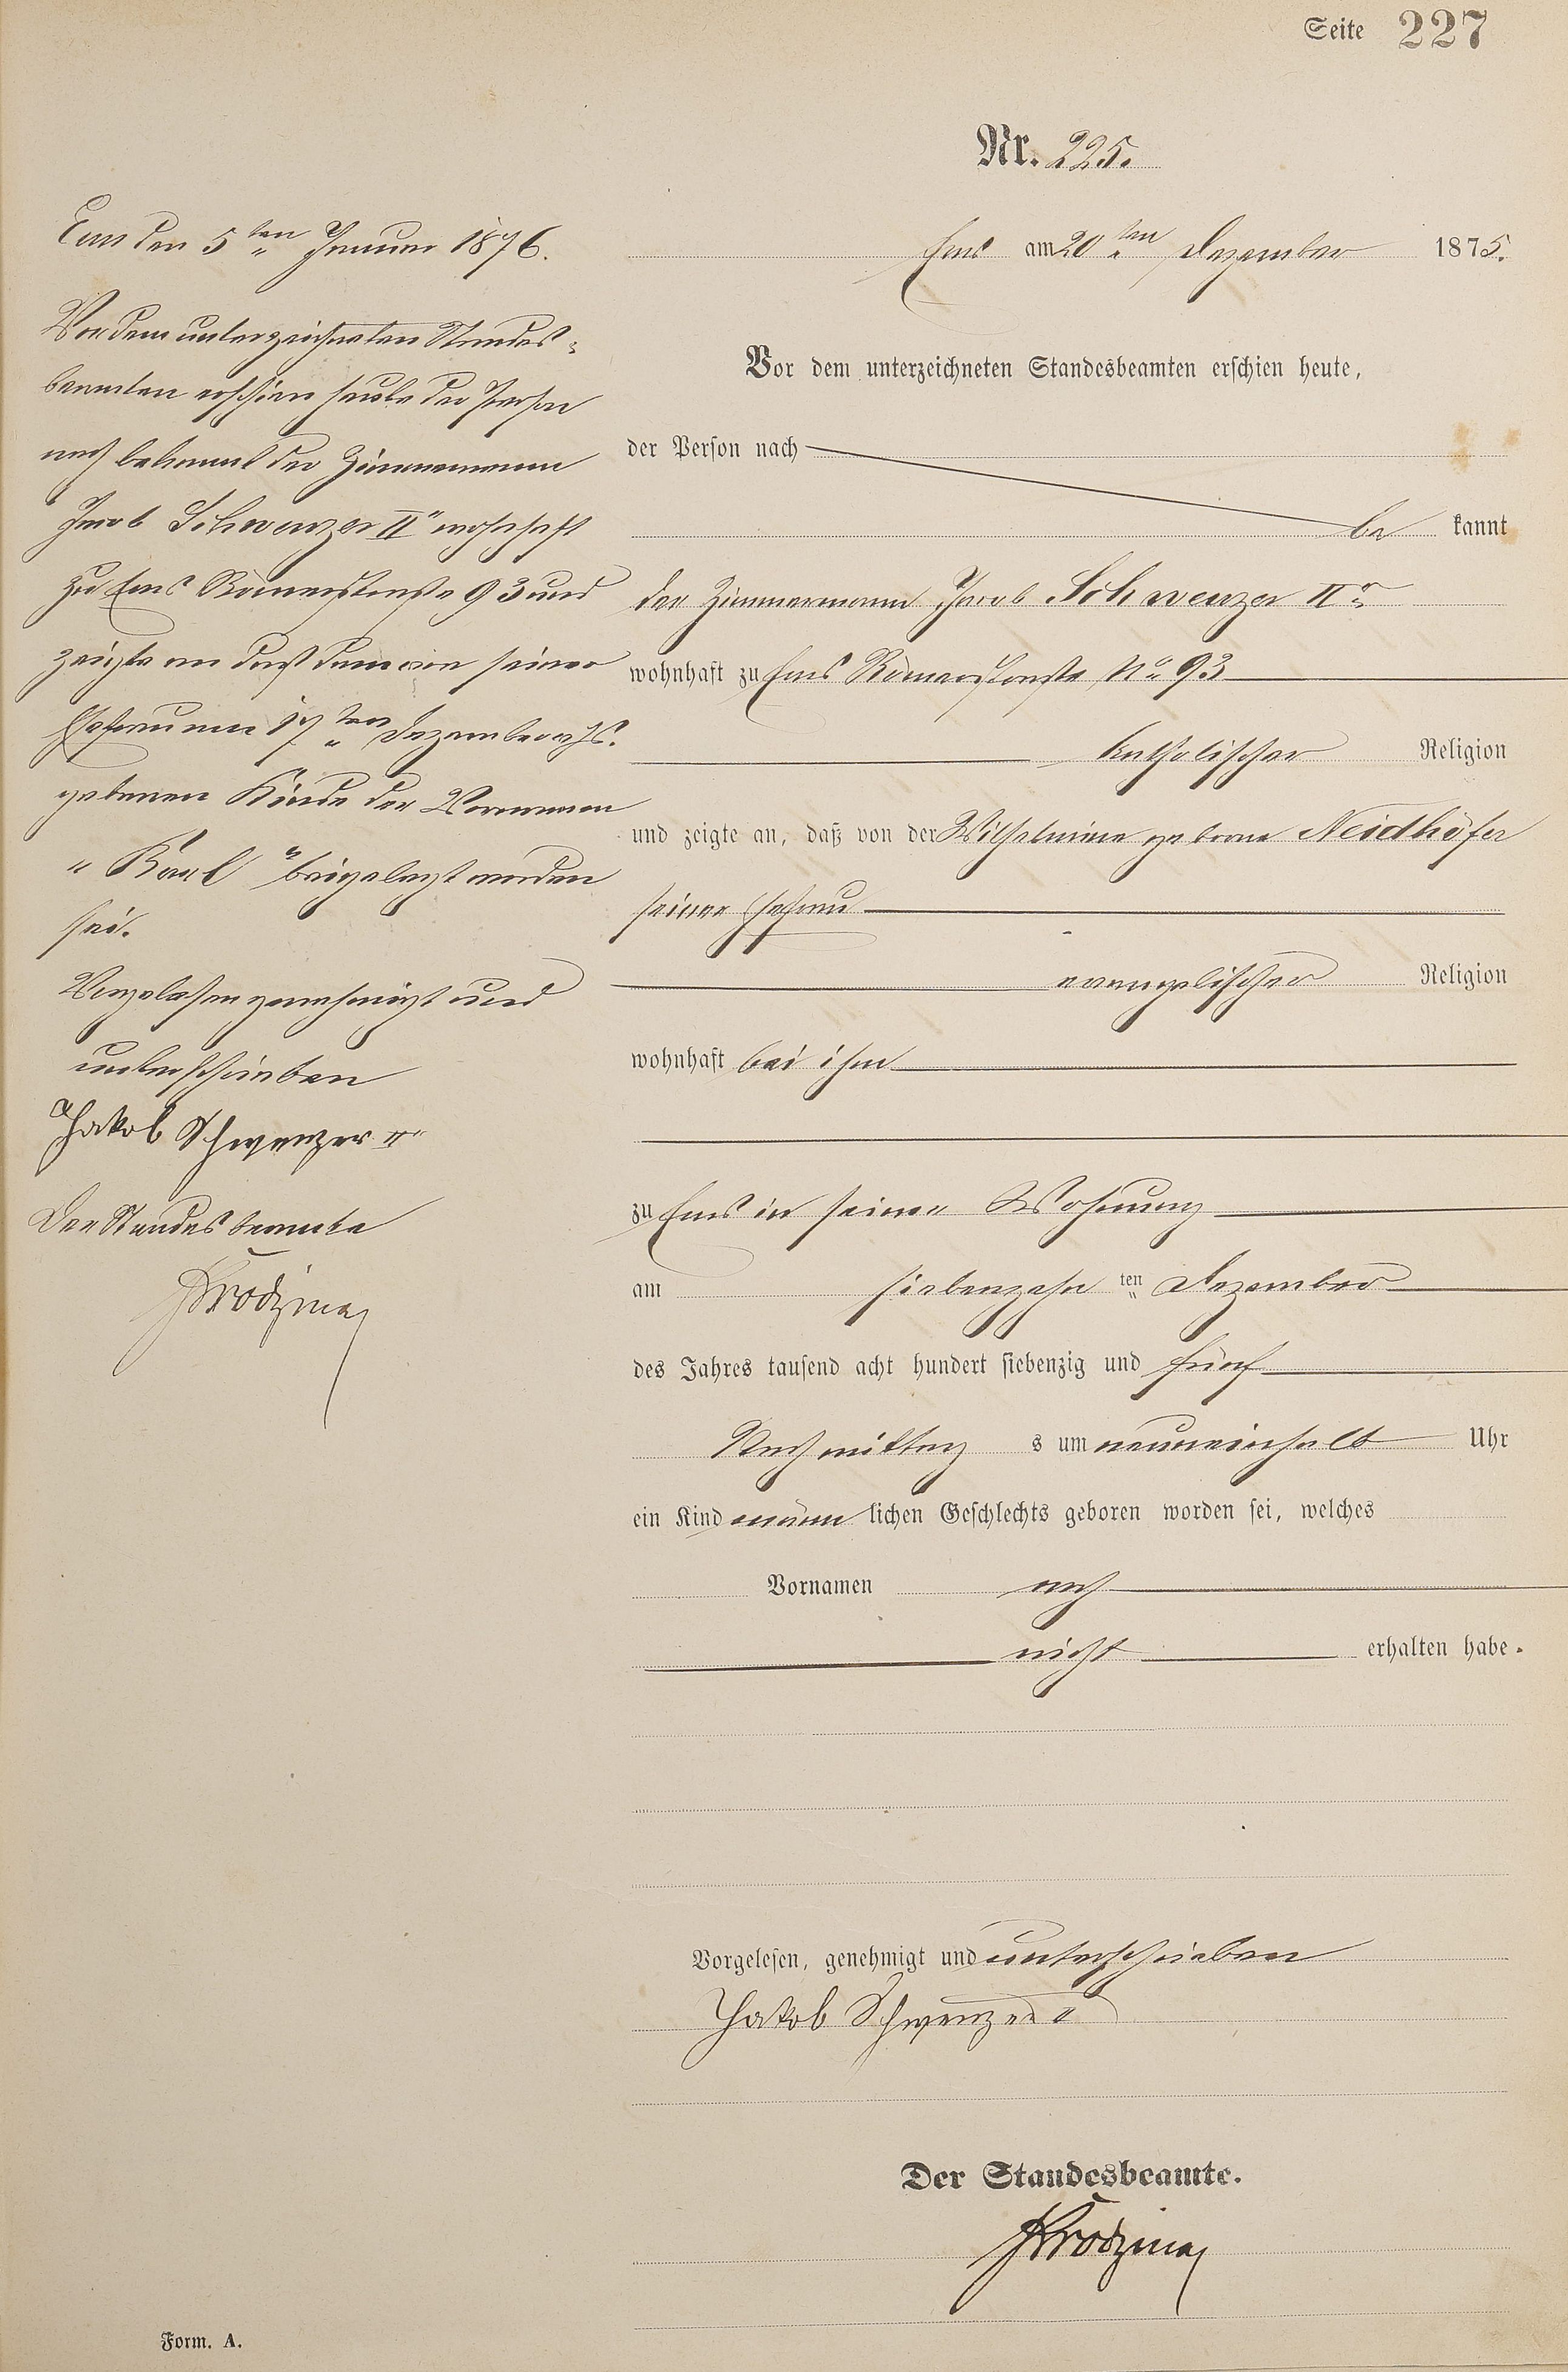 Seite 227
Nr. 225.
Ems am 20ten Dezember 1875.
Vor dem unterzeichneten Standesbeamten erschien heute,
der Person nach
be kannt
der Zimmermann Jacob Schwenzer IIr
wohnhaft zu Ems Römerstraße No 93
katholischer Religion
und zeigte an, daß von der Wilhelmine geborne Neidhöfer
seiner Ehefrau
evangelischer Religion
wohnhaft bei ihm
zu Ems in seiner Wohnung
am siebenzehn ten Dezember
des Jahres tausend acht hundert siebenzig und fünf
Nachmittag s um neuneinhalb Uhr
ein Kind männ lichen Geschlechts geboren worden sei, welches
Vornamen noch
nicht erhalten habe.
Vorgelesen, genehmigt und unterschrieben
Jakob Schwenzer II
Der Standesbeamte.
Ems den 5ten Januar 1876.
Vor dem unterzeichneten Standes=
beamten erschien heute der Person
nach bekannt der Zimmermann
Jacob Schwenzer IIr wohnhaft
zu Ems Römerstraße 93 und
zeigte an daß dem von seiner
Ehefrau am 17ten Dezember
geborenen Kinde der Vornamen
"Karl" beigelegt worden
sei.
Vorgelesen genehmigt und
unterschrieben
Jakob Schwenzer II
Der Standesbeamte
Form. A.